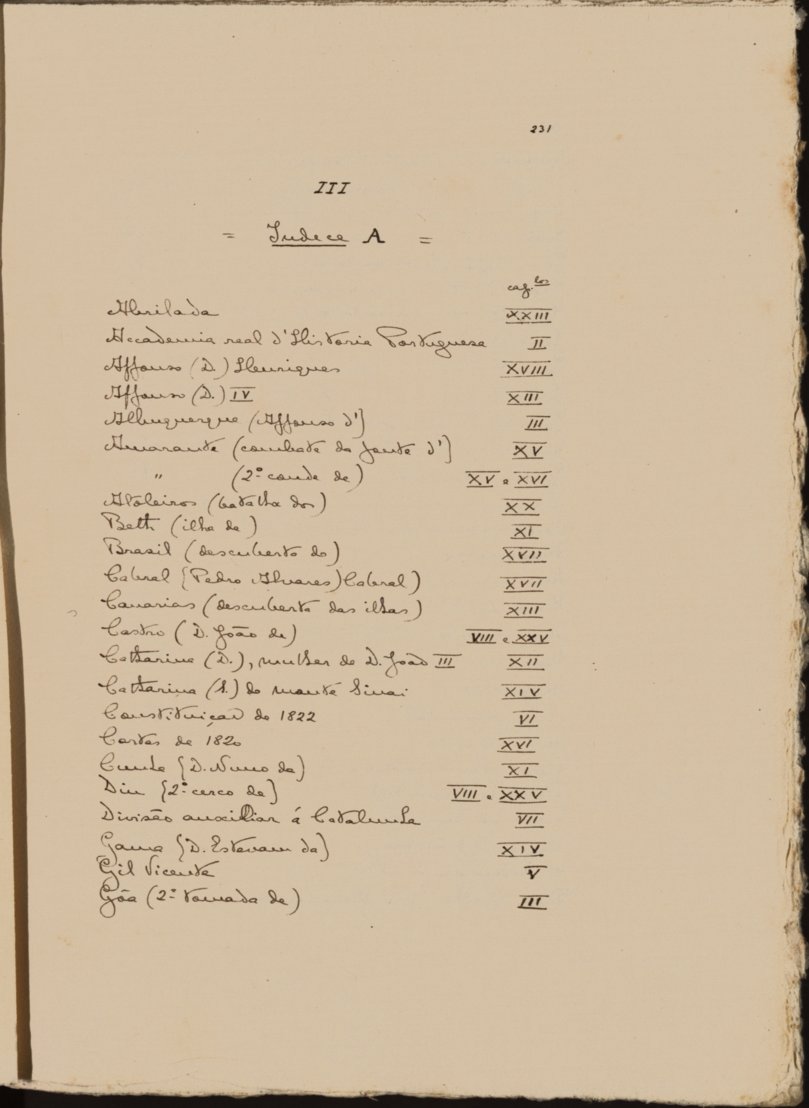 231
III
= Indece A =
cap.los
Abrilada XXIII
Accademia real d'Historia Portuguesa II
Affonso (D.) Henriques XVIII
Affonso (D.) IV XIII
Albuquerque (Affonso d') III
Amarante (combate da ponte d') XV
" (2º conde de) XV e XVI
Atoleiros (batalha dos) XX
Beth (ilha de) XI
Brasil (descuberto do) XVII
Cabral (Pedro Alvares) Cabral) XVII
Canarias (descuberta das ilhas) XIII
Castro (D. João de) VIII e XXV
Catharina (D.), mulher de D. João III XII
Catharina (S.) do monte Sinai XIV
Constituiçao de 1822 VI
Cortes de 1820 XVI
Cunha (D. Nuno da) XI
Diu (2º cerco de) VIII e XXV
Divisão auxiliar á Catalunha VII
Gama (D. Estevam da) XIV
Gil Vicente V
Gôa (2ª tomada de) III